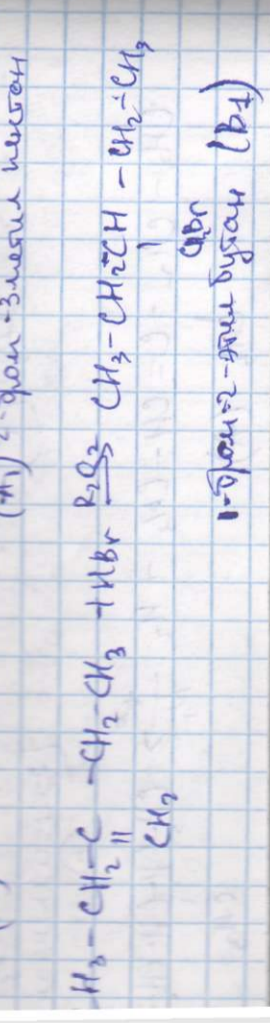 (A₁) 2-бром-3метил пентан
H₃-CH₂-C-CH₂-CH₃ + HBr R₂O₂ CH₃-CH₂-CH-CH₂-CH₃
CH₂ CH₂Br
1-бром-2-этил бутан (B₁)